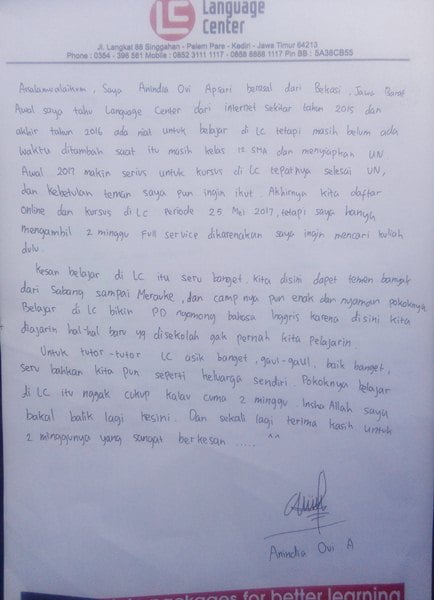 LC Language
Center
Jl. Langkat 88 Singgahan - Pelem Pare - Kediri - Jawa Timur 64213
Phone : 0354 - 396 561 Mobile : 0852 3111 1117 - 0858 6868 1117 Pin BB : 5A38CB55
Assalamualaikum, Saya Anindia Ovi Apsari berasal dari Bekasi, Jawa Barat
Awal saya tahu Language Center dari internet sekitar tahun 2015 dan
akhir tahun 2016 ada niat untuk belajar di LC tetapi masih belum ada
waktu ditambah saat itu masih kelas 12 SMA dan menyiapkan UN
Awal 2017 makin serius untuk kursus di LC tepatnya selesai UN,
dan kebetulan teman saya pun ingin ikut. Akhirnya kita daftar
online dan kursus di LC periode 25 Mei 2017, tetapi saya hanya
mengambil 2 minggu full service dikarenakan saya ingin mencari kuliah
dulu.
Kesan belajar di LC itu seru banget. Kita disini dapet temen banyak
dari Sabang sampai Merauke, dan camp nya pun enak dan nyaman pokoknya
Belajar di LC bikin PD ngomong bahasa Inggris karena disini kita
diajarin hal-hal baru yg disekolah gak pernah kita pelajarin.
Untuk tutor-tutor LC asik banget, gaul-gaul, baik banget,
seru bahkan kita pun seperti keluarga sendiri. Pokoknya belajar
di LC itu nggak cukup kalau cuma 2 minggu. Insha Allah saya
bakal balik lagi kesini. Dan sekali lagi terima kasih untuk
2 minggunya yang sangat berkesan ..... ^^
Anindia Ovi A
packages for better learning